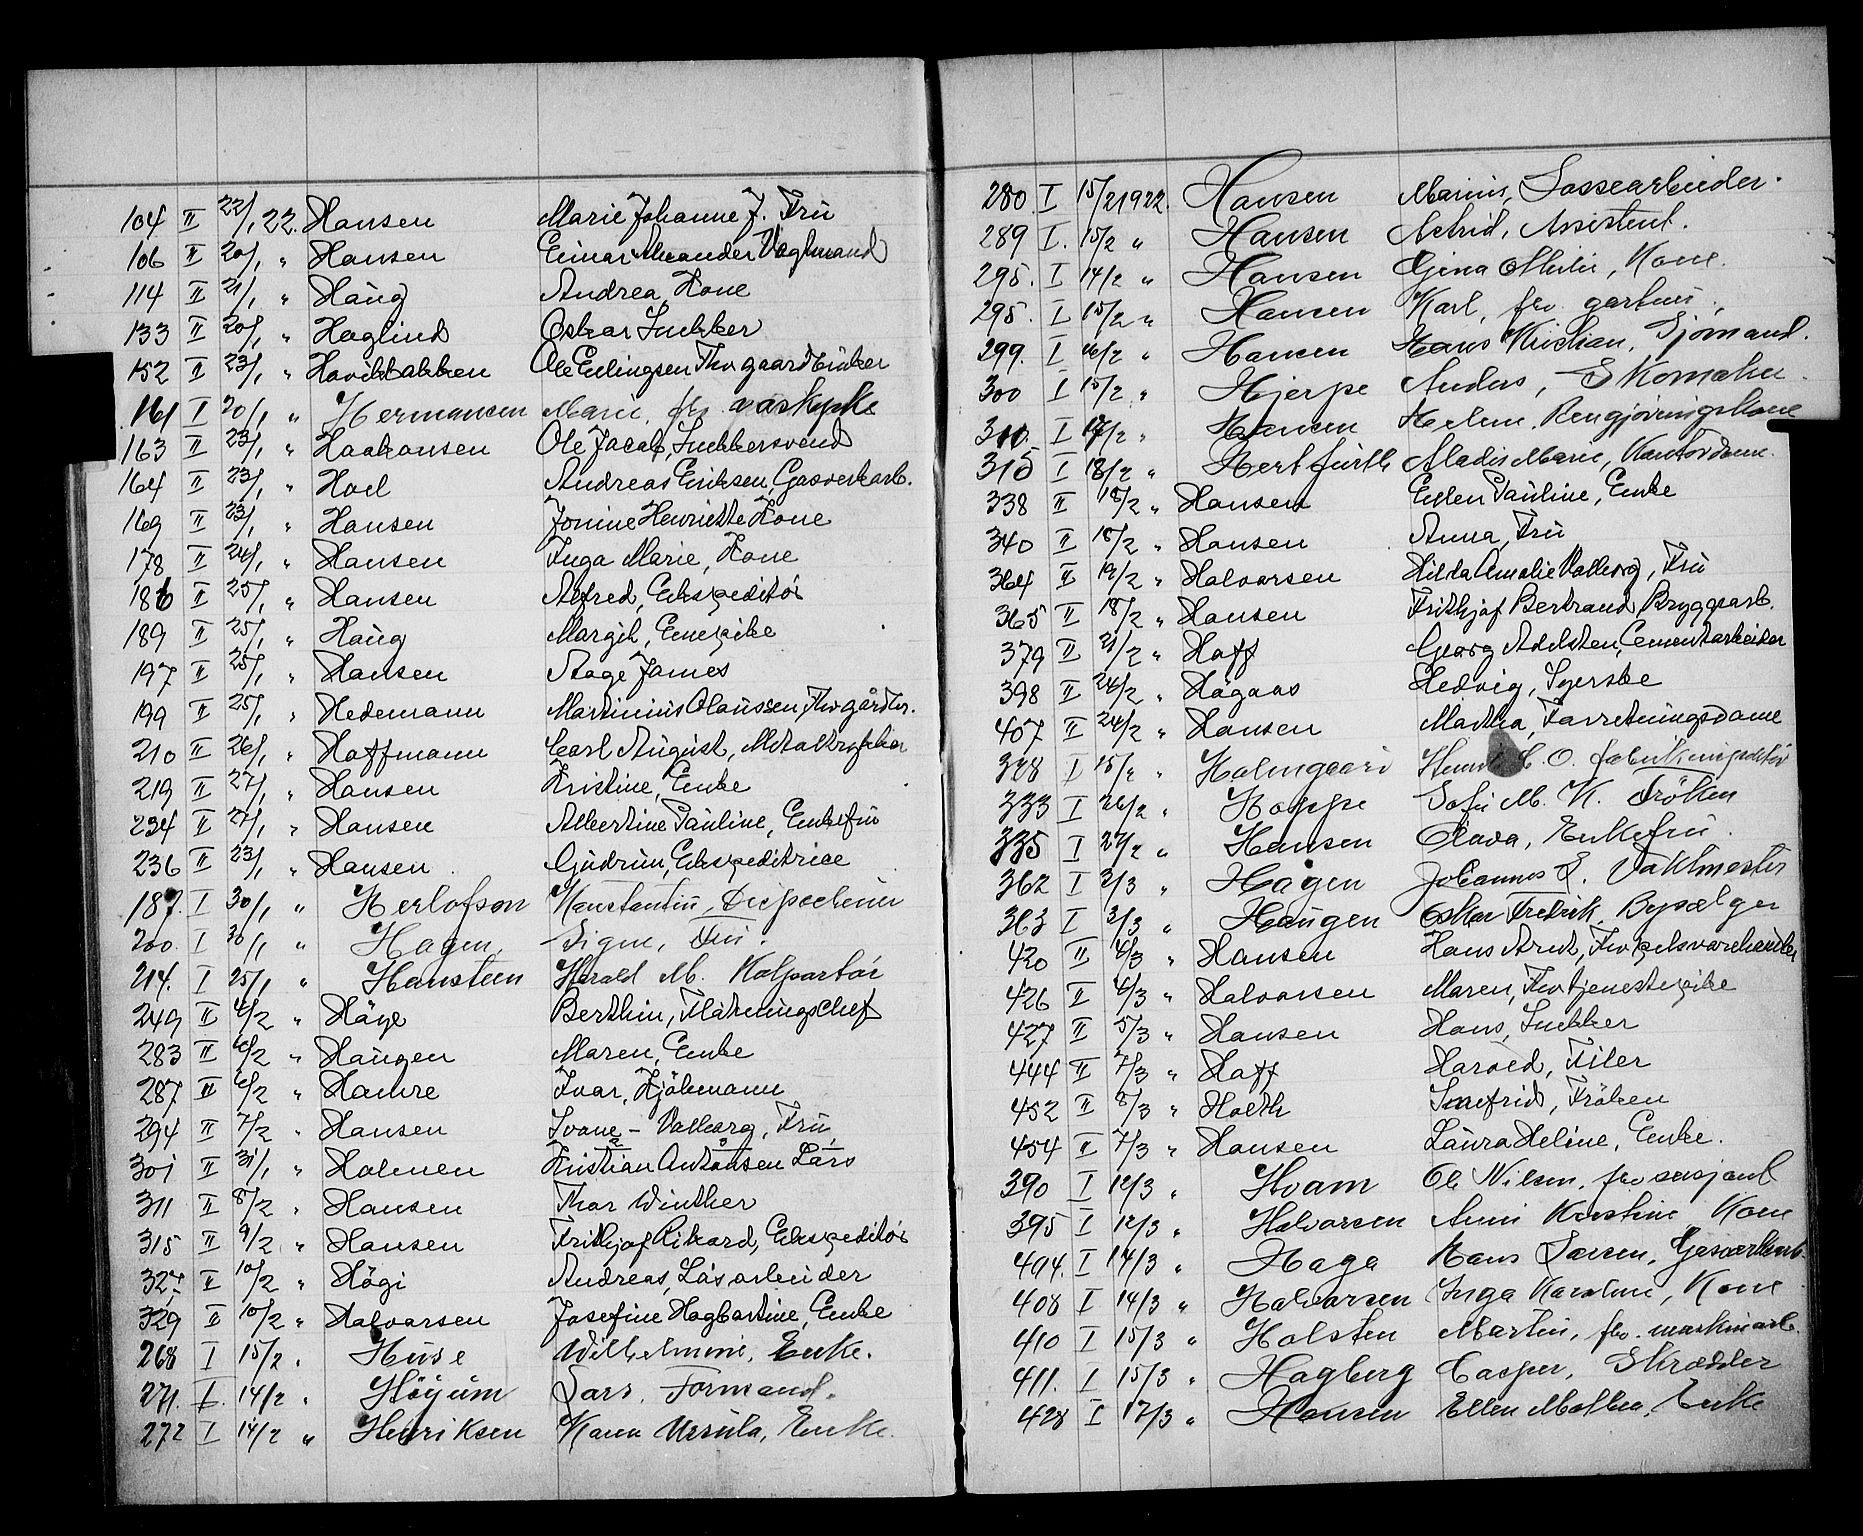 104 II 22/1 22. Hansen Marie Johanne J. Frü
106 II 20/1 " Hansen Einar Alexander Vognmand
114 II 21/1 " Haüg Andrea, Kone
133 II 20/1 " Haglünd Oskar Snekker
152 II 23/1 " Havikbakken Ole Erlingsen Fhv gaardbrüker
161 I 20/1 " Hermansen Marie, fhv.
163 II 23/1 " Haakonsen Ole Jacob, Snekkersvend
164 II 23/1 " Hoel Andreas Eriksen, Gasverkarb.
169 II 23/1 " Hansen Jonine Henriette Kone
178 II 24/1 " Hansen Inga Marie, Kone
186 II 25/1 " Hansen Alfred, Ekspeditör
189 II 25/1 " Haüg Margit, Enepike
197 II 25/1 " Hansen Aage James
199 II 25/1 " Hedemann Martinius Olaüssen, Fhv gårdbr.
210 II 26/1 " Hoffmann Carl Aügüst, Metaltrykker
219 II 27/1 " Hansen Kristine, Enke
234 II 27/1 " Hansen Albertine Paüline, Enkefrü
236 II 23/1 " Hansen Güdrün, Ekspeditrice
187. I 30/1 " Herlofson Konstantin, Disponent
200. I 30/1 " Hagen, Signe, Frü.
214. I 25/1 " Hansteen Harald M. Kolportör
249 II 4/2 " Häge Berthin, Flåtningschef
283 II 6/2 " Haügen Maren, Enke
287 II 6/2 " Hamre Ivar, Kjöbmann
294 II 7/2 " Hansen Svane - Valborg, Frü
301 II 31/1 " Holmen Kristian Antonsen Lårs
311 II 8/2 " Hansen Thor Winther
315 II 9/2 " Hansen Frithjof Rikard, Ekspeditör
327 II 10/2 " Högi Andreas, Løsarbeider
329 II 10/2 " Halvorsen Josefine Hagbartine, Enke
268 I 15/2 " Hüse Wilhelmine, Enke.
271. I. 14/2 " Höyüm Lars, Formand.
272 I 14/2 " Henriksen Karen Ursüla, Enke.
280 I 15/2 1922. Hansen Marius, Lossearbeider.
289 I. 15/2 " Hansen Astrid, Assistent.
295. I 14/2 " Hansen Gina Otilie, Kone.
295. I 15/2 " Hansen Karl, fhv. gartner.
299. I 16/2 " Hansen Hans Kristian, Sjömand.
300 I 15/2 " Hjerpe Anders, Skomaker.
311. I 17/2 " Hansen Helene, Rengjöringskone
315 I 18/2 " Hertfürth Marie, Kontordame.
338 II 18/2 " Hansen Ellen Paüline, Enke
340 II 18/2 " Hansen Anna, Frü
364 II 19/2 " Halvorsen Hilda Amalie Valborg, Frü
365 II 18/2 " Hansen Frithjof Bertrand, Bryggearb.
379 II 21/2 " Hoff Georg Adelsten, Cementarbeider
398 II 24/2 " Hågaas Hedvig, Syerske
407 II 24/2 " Hansen Martha, Forretningsdame
328 I 15/2 " Holmgaard C. O.
333 I 26/2 " Hoppe Sofie M. K. Fröken
335 I 27/2 " Hansen Olava, Enkefrü.
362 I 2/3 " Hagen Johannes L. Vaktmester
363 I 3/3 " Haugen Oskar Fredrik, Bysælger
420 II 4/3 " Hansen Hans Arnt, Fhv pelsvarehandler
426 II 4/3 " Halvorsen Maren, Fhv tjenestepike
427 II 5/3 " Hansen Hans, Snekker
444 II 7/3 " Hoff Harald, Filer
452 II 8/3 " Holth Snefrid, Fröken
454 II 7/3 " Hansen Laüra Heline, Enke.
390 I 12/3 " Hvam Ole Nilsen, fhv sersjant
395 I 12/3 " Halvorsen Anne Kirstine, Kone
404. I 14/3 " Haga Hans Larsen, Gasverkarb.
408 I 14/3 " Halvorsen Inga Karoline, Kone
410 I 15/3 " Holsten Martin, fhv. maskinarb.
411. I 15/3 " Hagberg Casper, Skrædder
428 I 17/3 " Hansen Ellen Mathea, Enke